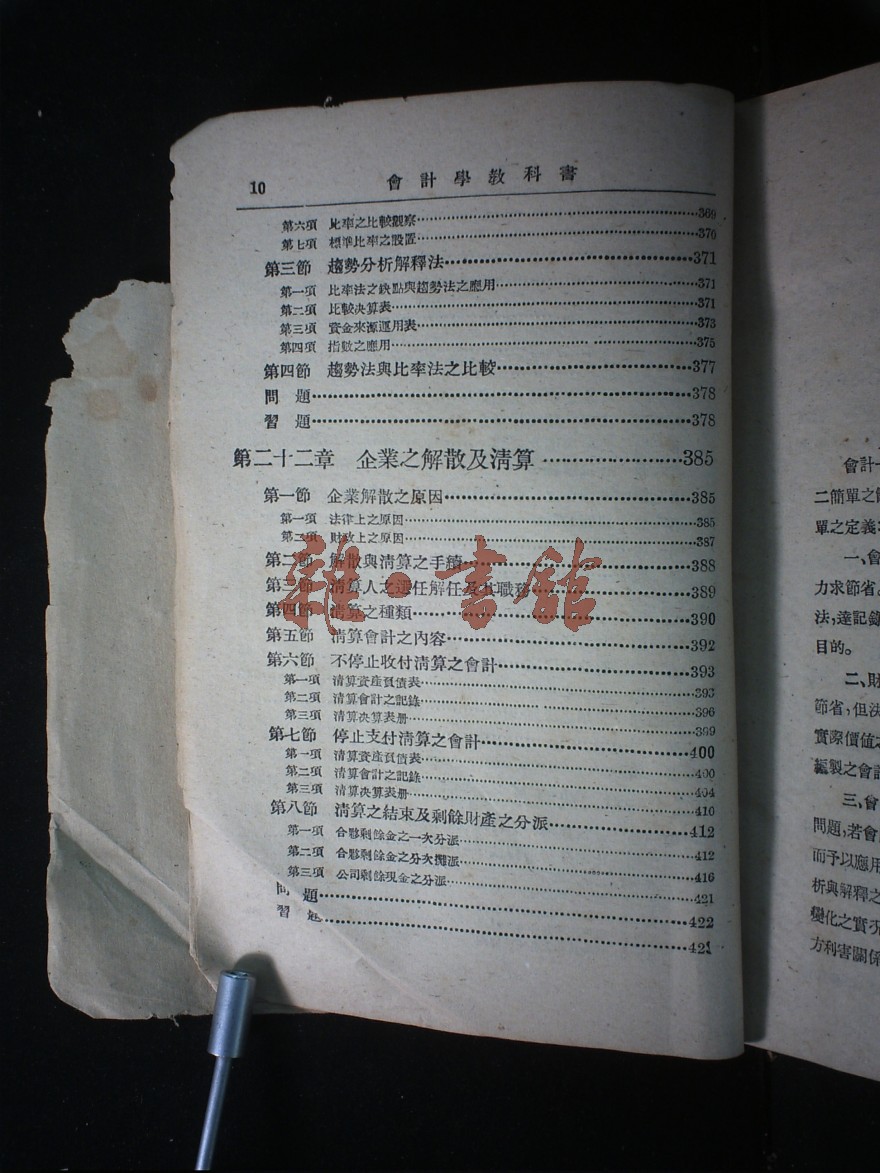 10 會計學教科書
第六項 比率之比較觀察 369
第七項 標準比率之設置 370
第三節 趨勢分析解釋法 371
第一項 比率法之缺點與趨勢法之應用 371
第二項 比較決算表 371
第三項 資金來源運用表 373
第四項 指數之應用 375
第四節 趨勢法與比率法之比較 377
問題 378
習題 378
第二十二章 企業之解散及清算 385
第一節 企業解散之原因 385
第一項 法律上之原因 385
第二項 財政上之原因 387
第二節 解散與清算之手續 388
第三節 清算人之選任解任及其職務 389
第四節 清算之種類 390
第五節 清算會計之內容 392
第六節 不停止收付清算之會計 393
第一項 清算資產負債表 393
第二項 清算會計之記錄 396
第三項 清算決算表册 399
第七節 停止支付清算之會計 400
第一項 清算資產負債表 400
第二項 清算會計之記錄 404
第三項 清算決算表册 410
第八節 清算之結束及剩餘財產之分派 412
第一項 合夥剩餘金之一次分派 412
第二項 合夥剩餘金之分次攤派 416
第三項 公司剩餘現金之分派 421
問題 422
習題 421
雜·書館
會計
二簡單之
單之定義
一、會
力求節省。
法,達記錄
目的。
二、財
節省,但決
實際價值之
編製之會計
三、會
問題,若會
而予以應用
析與解釋之
變化之實
方利害關係